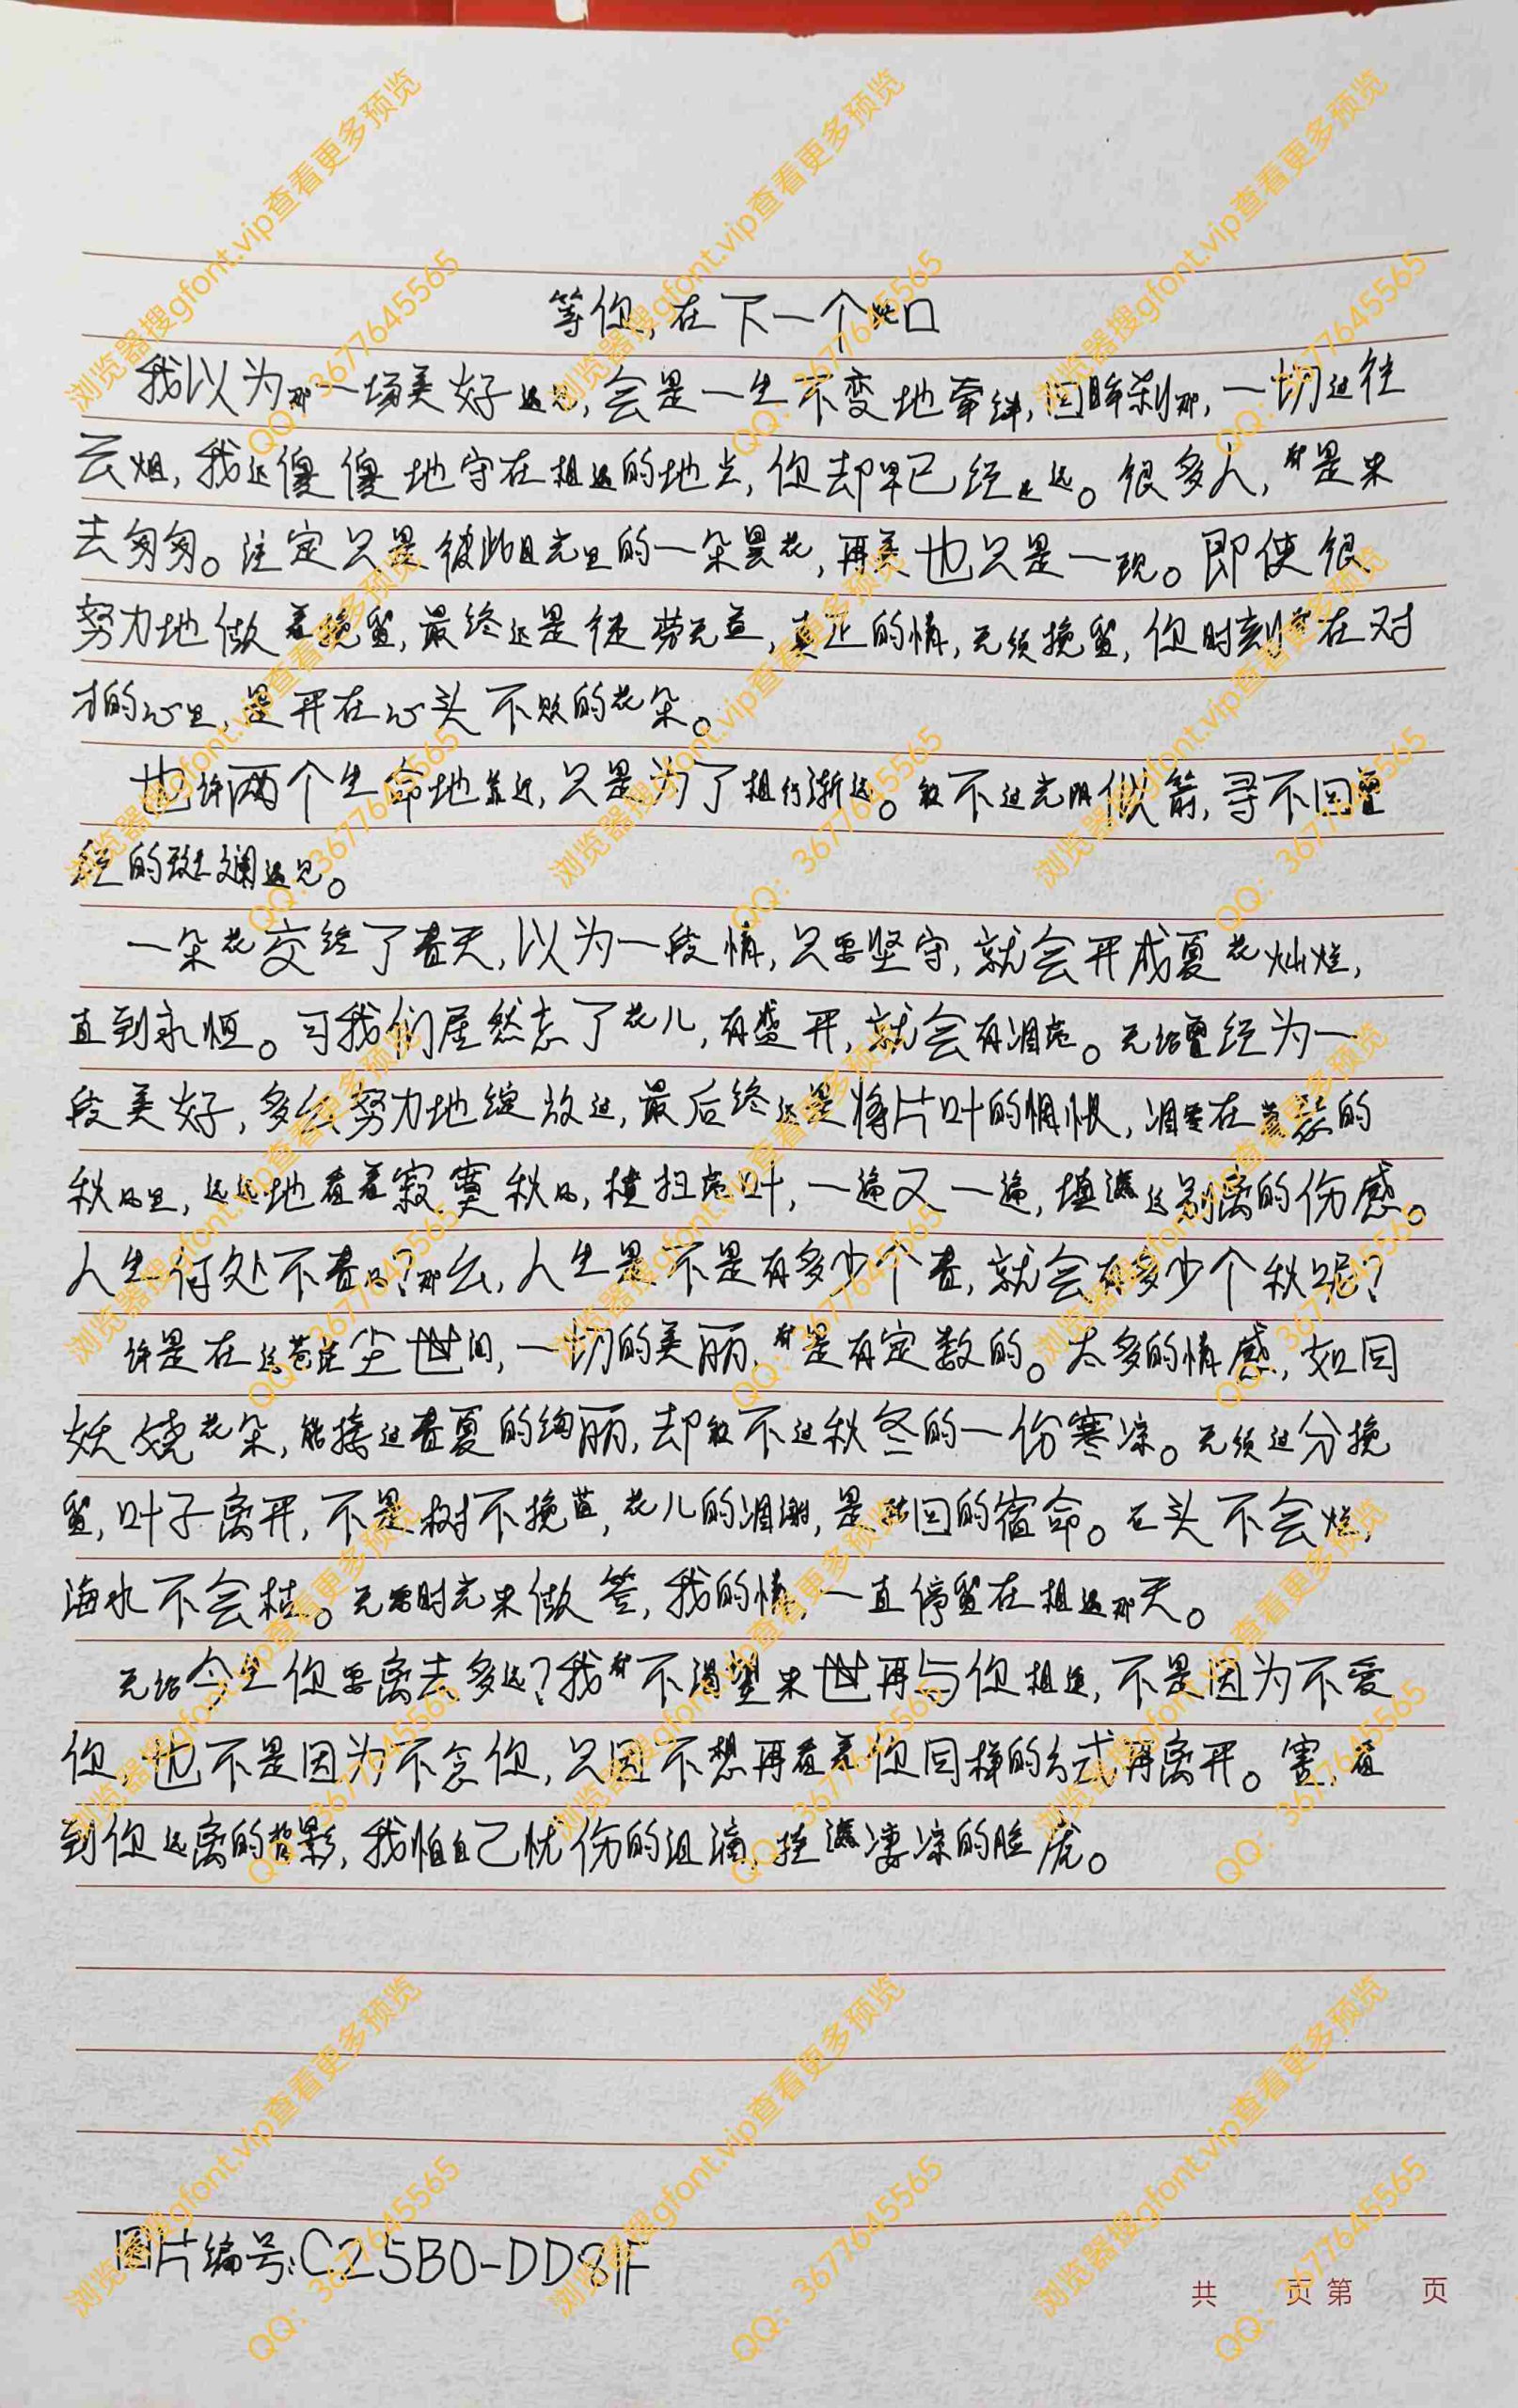 等你,在下一个路口
我以为那一场美好遇见,会是一生不变地牵绊,回眸刹那,一切过往
云烟,我还傻傻地守在相遇的地点,你却早已经走远。很多人,都是来
去匆匆。注定只是彼此目光里的一朵昙花,再美也只是一现。即使很
努力地做着挽留,最终还是徒劳无益,真正的情,无须挽留,你时刻常在对
方的心里,是开在心头不败的花朵。
也许两个生命地靠近,只是为了相行渐远。敌不过光阴似箭,寻不回曾
经的斑斓遇见。
一朵花交给了春天,以为一段情,只要坚守,就会开成夏花灿烂,
直到永恒。可我们居然忘了花儿,有盛开,就会有凋落。无论曾经为一
段美好,多么努力地绽放过,最后终还是将片叶的惆怅,凋零在萧瑟的
秋风里,远远地看着寂寞秋风,横扫落叶,一遍又一遍,填满这别离的伤感。
人生何处不春风?那么,人生是不是有多少个春,就会有多少个秋呢?
许是在这苍茫尘世间,一切的美丽,都是有定数的。太多的情感,如同
妖娆花朵,能接过春夏的绚丽,却敌不过秋冬的一份寒凉。无须过分挽
留,叶子离开,不是树不挽蓝,花儿的凋谢,是轮回的宿命。石头不会烂,
海水不会枯。无需时光来做答,我的情,一直停留在相遇那天。
无论今生你要离去多远?我都不渴望来世再与你相逢,不是因为不爱
你,也不是因为不念你,只因不想再看着你同样的方式再离开。害,看
到你远离的背影,我怕自己忧伤的泪滴,挂满凄凉的脸庞。
图片编号:C25B0-DD81F
共 页 第 页
浏览器搜gfont.vip查看更多预览
QQ: 3677645565